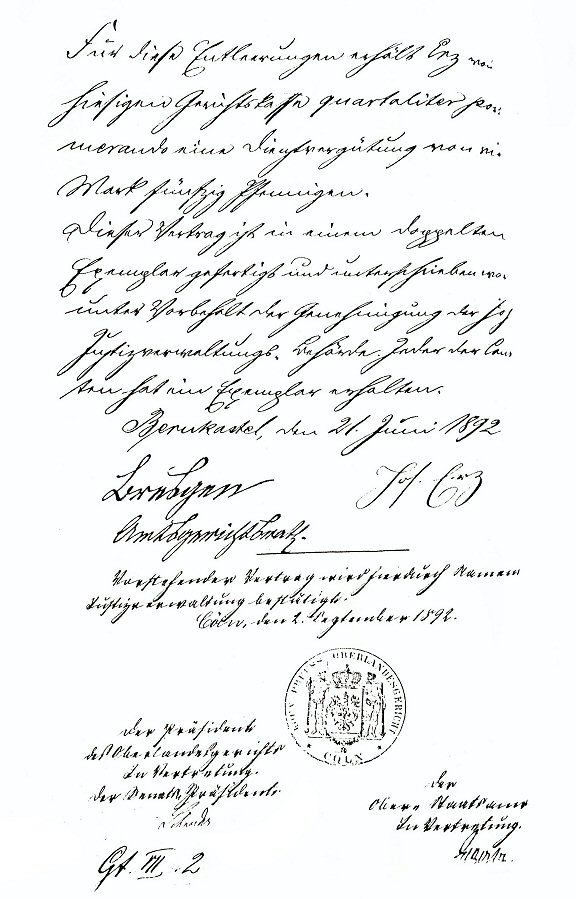 Für diese Entleerungen erhält Erz von
hiesigen Gerichtskasse quartaliter post
numerando eine Dienstvergütung von
Mark fünfzig Pfennigen.
Dieser Vertrag ist in einem doppelten
Exemplar gefertigt und unterschrieben wor
unter Vorbehalt der Genehmigung der
Justizverwaltungs-Behörde. Jeder der Con
ten hat ein Exemplar erhalten.
Bernkastel, den 21. Juni 1892
Bresgen Jos. Erz
Amtsgerichtsrath.
Vorstehender Vertrag wird hierdurch Namens
Justizverwaltung bestätigt.
Cöln, den 2. September 1892.
KÖN. PREUSS. OBERLANDESGERICHT
CÖLN
Der Präsident
des Oberlandesgerichts
In Vertretung.
Der Senats-Präsident.
Der
Ober-Staatsanw
In Vertretung.
Gt. III. 2